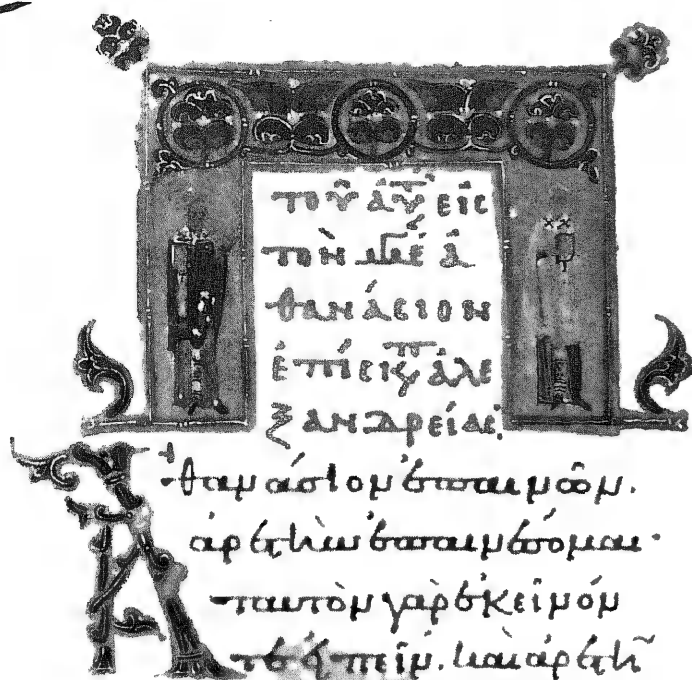 τοῦ ἀυτ εἰς
τὸν μέγ ἀ
θανάσιον
ἐπίσκοπ ἀλε
ξανδρείας
Ἀθανάσιον ἐπαινῶν.
ἀρετὴν ἐπαινέσομαι·
ταυτὸν γὰρ ἐκεῖνόν
τε εἰπεῖν. καὶ ἀρετὴ